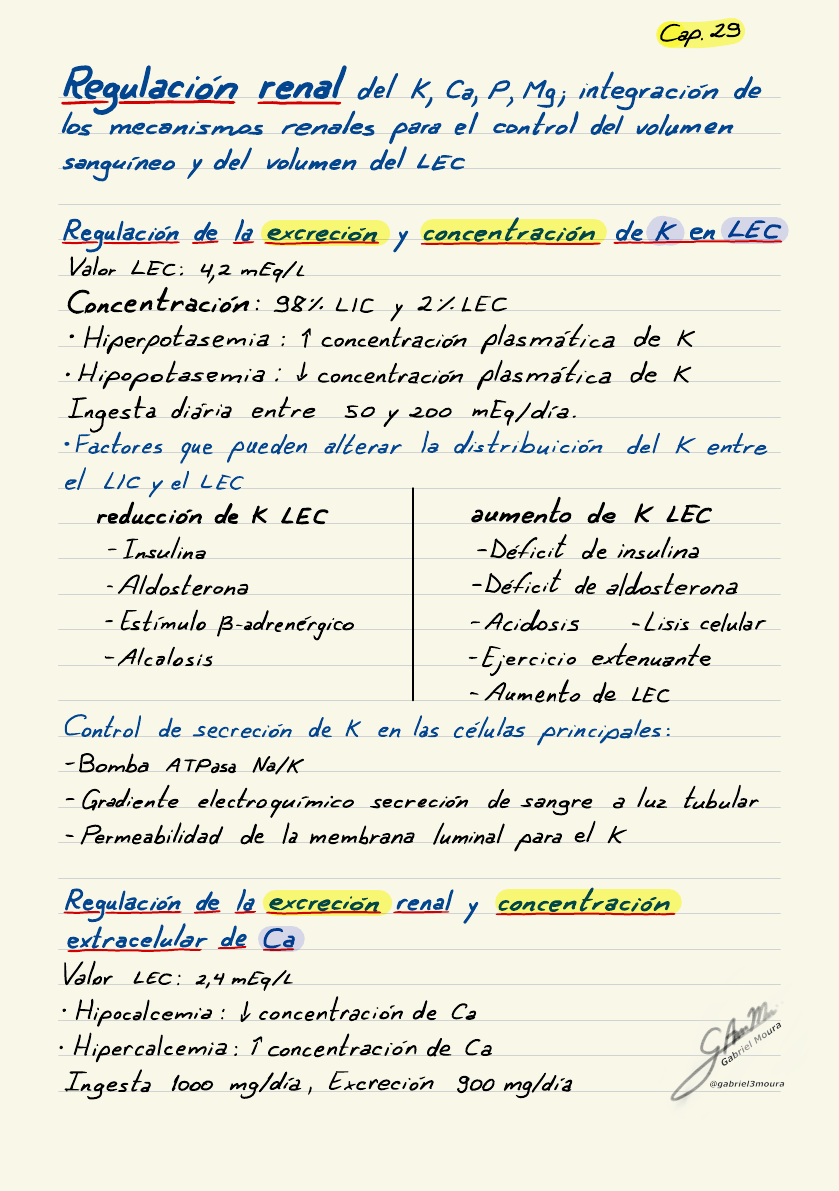 Cap. 29
Regulación renal del K, Ca, P, Mg; integración de
los mecanismos renales para el control del volumen
sanguíneo y del volumen del LEC
Regulación de la excreción y concentración de K en LEC
Valor LEC: 4,2 mEq/L
Concentración: 98% LIC y 2% LEC
· Hiperpotasemia: ↑ concentración plasmática de K
· Hipopotasemia: ↓ concentración plasmática de K
Ingesta diária entre 50 y 200 mEq/día.
· Factores que pueden alterar la distribuición del K entre
el LIC y el LEC
reducción de K LEC
- Insulina
- Aldosterona
- Estímulo β-adrenérgico
- Alcalosis
aumento de K LEC
- Déficit de insulina
- Déficit de aldosterona
- Acidosis - Lisis celular
- Ejercicio extenuante
- Aumento de LEC
Control de secreción de K en las células principales:
- Bomba ATPasa Na/K
- Gradiente electroquímico secreción de sangre a luz tubular
- Permeabilidad de la membrana luminal para el K
Regulación de la excreción renal y concentración
extracelular de Ca
Valor LEC: 2,4 mEq/L
· Hipocalcemia: ↓ concentración de Ca
· Hipercalcemia: ↑ concentración de Ca
Ingesta 1000 mg/día, Excreción 900 mg/día
Gabriel Moura
@gabriel3moura